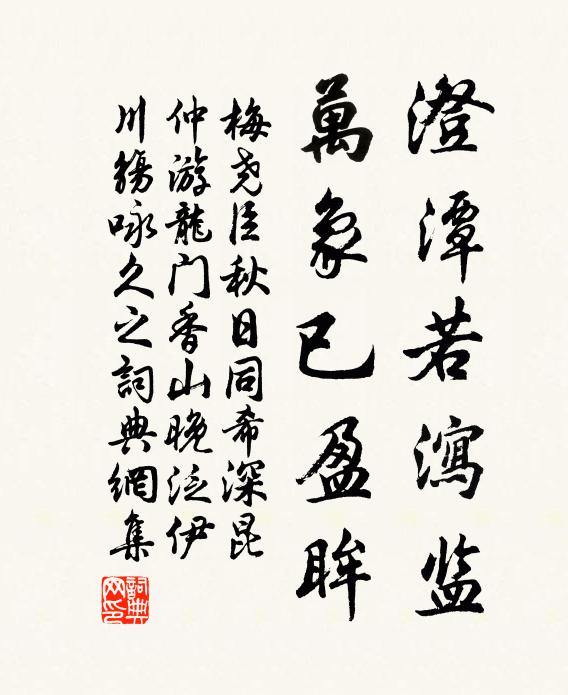 澄潭若瀉监
萬象已盈眸
梅尧臣秋日同希深昆
仲游龍门香山晚泛伊
川觴咏久之詞典網集
詞典
网印